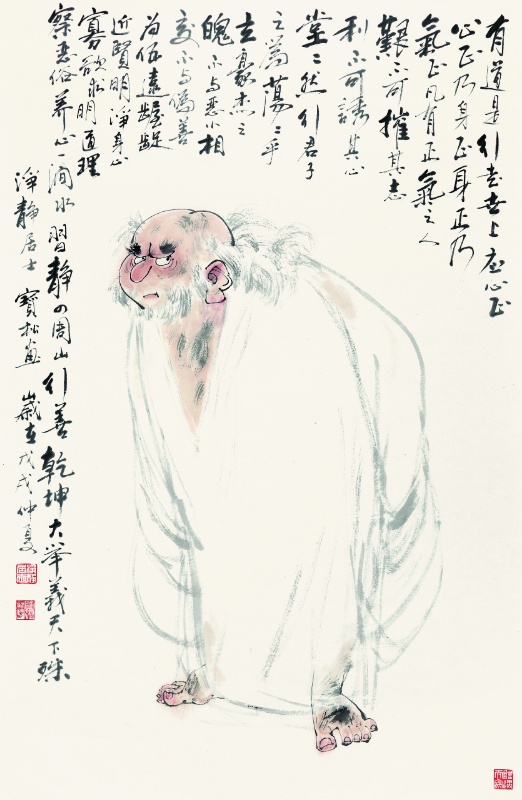 有道是行走世上应心正
心正乃身正身正乃
氣正凡有正氣之人
艱不可摧其志
利不可誘其心
堂〻然行君子
之為蕩〻乎
立豪杰之
魄不与恶小相
交不与偽善
为伍遠龌龊
近賢明淨身心
寡欲求明道理
察恶俗养心一澗水習静四周山行善乾坤大举義天下
淨静居士寶松畫歲在戊戌仲夏